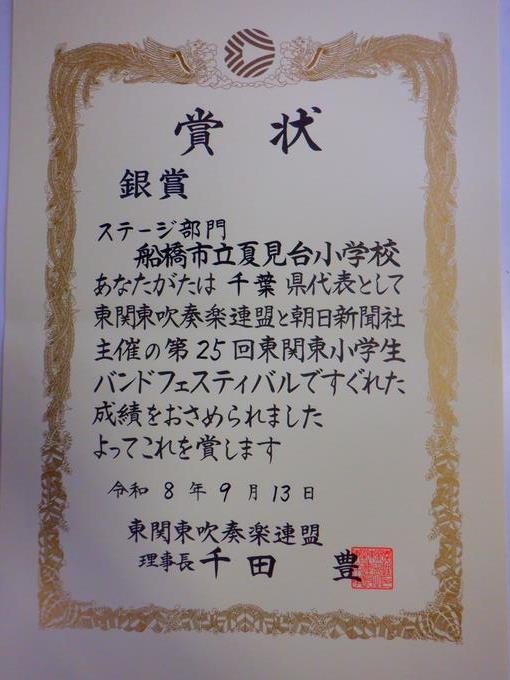 賞状
銀賞
ステージ部門
船橋市立夏見台小学校
あなたがたは千葉県代表として
東関東吹奏楽連盟と朝日新聞社
主催の第25回東関東小学生
バンドフェスティバルですぐれた
成績をおさめられました
よってこれを賞します
令和8年9月13日
東関東吹奏楽連盟
理事長 千田 豊